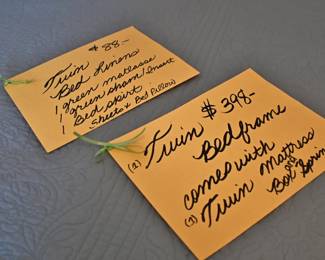 $88.-
Twin
Bed Linens
1 green matlasse
1 green sham/Insert
1 Bed skirt
Sheets & Bed Pillow
$398.-
(1) Twin
Bedframe
comes with
(1) Twin Mattress
and
Box Sprin